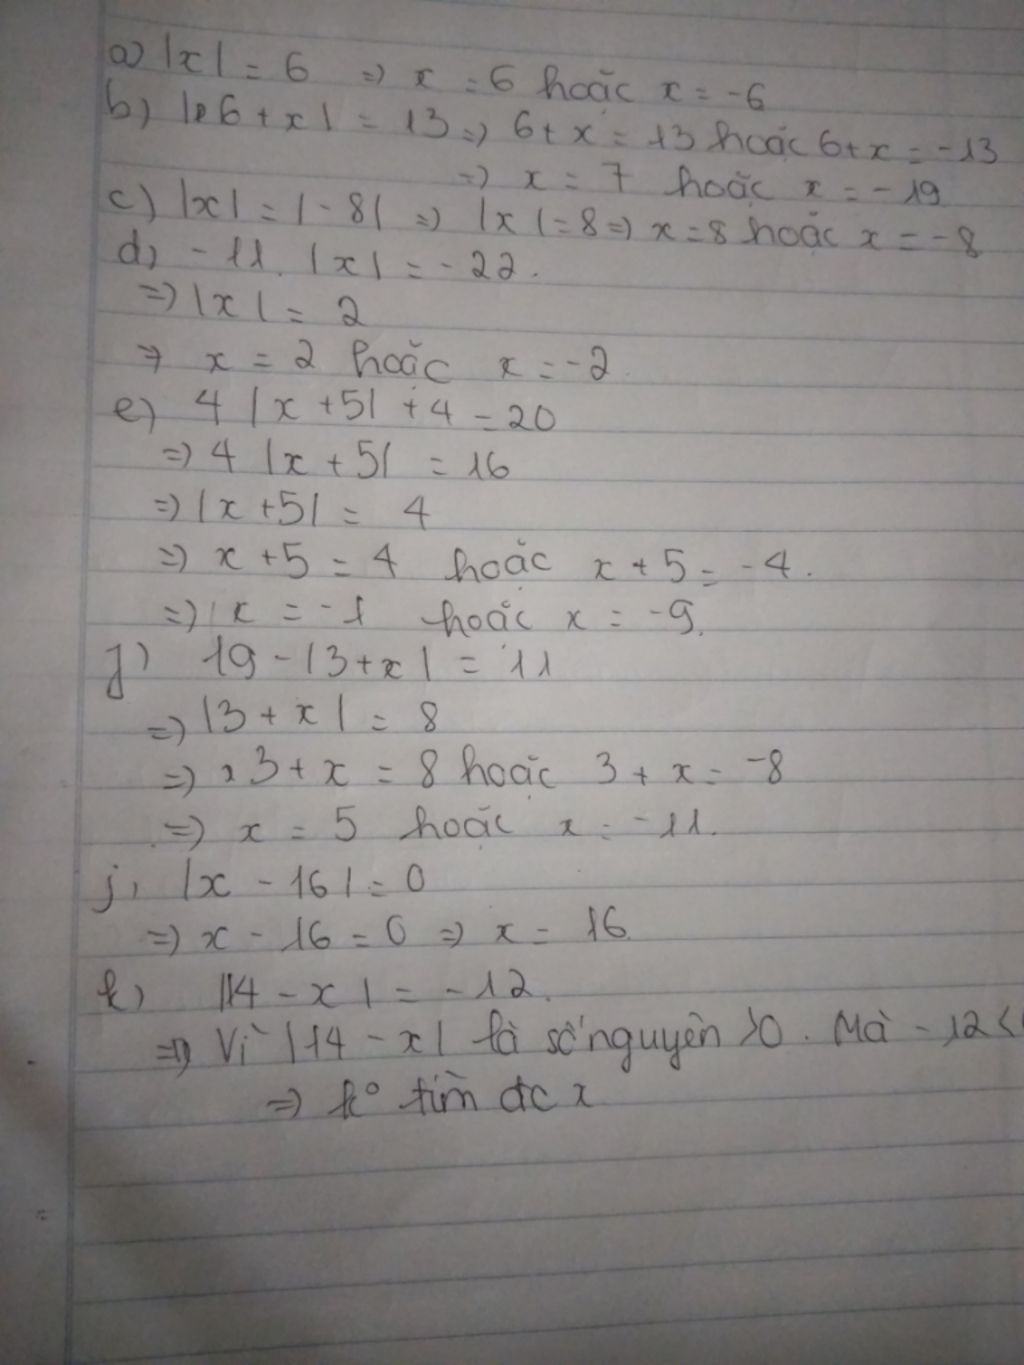 a) |x| = 6 => x = 6 hoặc x = -6
b) |6 + x| = 13 => 6 + x = 13 hoặc 6 + x = -13
=> x = 7 hoặc x = -19
c) |x| = |-8| => |x| = 8 => x = 8 hoặc x = -8
d) -11. |x| = -22.
=> |x| = 2
=> x = 2 hoặc x = -2.
e) 4 |x + 5| + 4 = 20
=> 4 |x + 5| = 16
=> |x + 5| = 4
=> x + 5 = 4 hoặc x + 5 = -4.
=> x = -1 hoặc x = -9.
g) 19 - |3 + x| = 11
=> |3 + x| = 8
=> 3 + x = 8 hoặc 3 + x = -8
=> x = 5 hoặc x = -11.
j, |x - 16| = 0
=> x - 16 = 0 => x = 16.
k) |14 - x| = -12.
=> Vì |14 - x| là số nguyên >0. Mà -12 <
=> k° tìm đc x